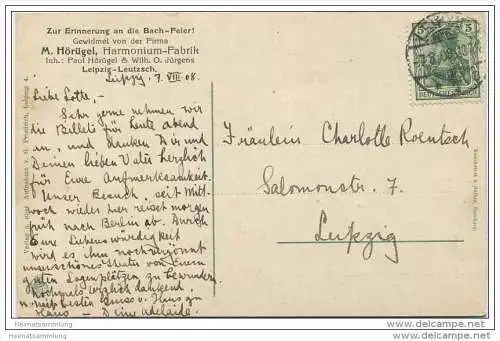 Zur Erinnerung an die Bach-Feier!
Gewidmet von der Firma
M. Hörügel, Harmonium-Fabrik
Inh.: Paul Hörügel & Wilh. O. Jürgens
Leipzig-Leutzsch.
Leipzig, 7. VIII. 08.
Liebe Lotte, -
Sehr gerne nehmen wir
die Billets für heute abend
an, und danken Dir und
Deinem lieben Vater herzlich
für Eure Aufmerksamkeit.
Unser Besuch, seit Mitt-
woch wieder hier reiset morgen
früh nach Berlin ab. Durch
Eure Liebenswürdigkeit
wird es ihm noch vergönnt
unser schönes Theater von Euren
guten Logenplätzen zu bewundern.
Nochmals herzlich dankend,
mit besten Gruss v. Haus zu
Haus - Deine Adelaide.
Fräulein Charlotte Roentsch
Salomonstr. 7.
Leipzig
DEUTSCHES REICH
5
Heimatsammlung
www.heimatsammlung.de